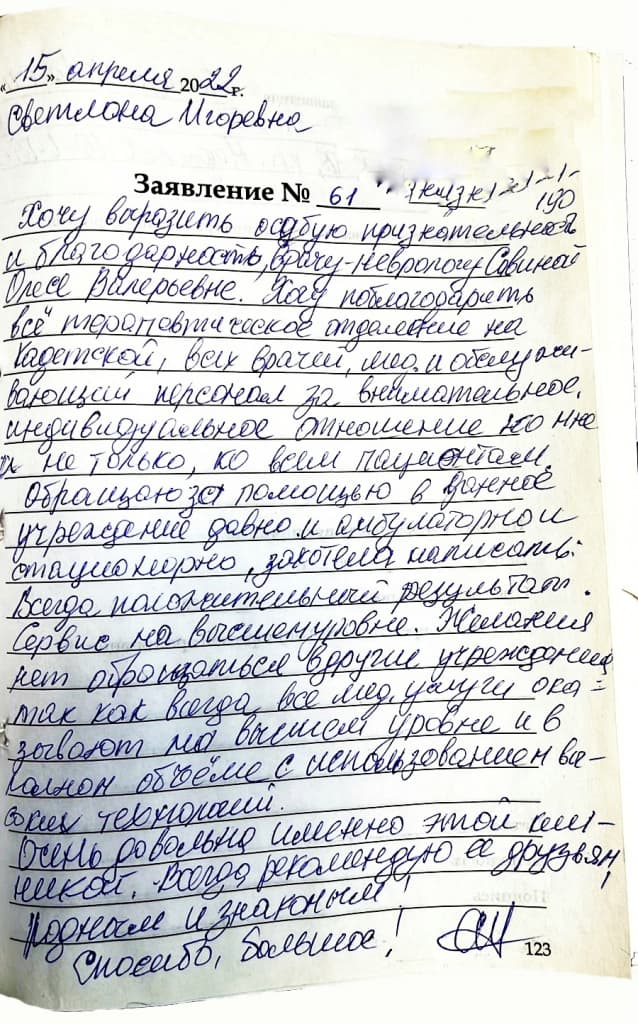 «15» апреля 2022 г.
Светлана Игоревна
Заявление № 61
190
Хочу выразить особую признательность
и благодарность, врачу-неврологу Савиной
Олесе Валерьевне. Хочу поблагодарить
всё терапевтическое отделение на
Кадетской, всех врачей, мед. и обслужи-
вающий персонал за внимательное,
индивидуальное отношение ко мне
и не только, ко всем пациентам.
Обращаюсь за помощью в данное
учреждение давно и амбулаторно и
стационарно, захотела написать.
Всегда положительный результат.
Сервис на высшем уровне. Желания
нет обращаться в другие учреждения
так как всегда все мед. услуги ока=
зывают на высшем уровне и в
полном объёме с использованием вы-
соких технологий.
Очень довольна именно этой кли-
никой. Всегда рекомендую её друзьям,
родным и знакомым!
Спасибо, большое!
123